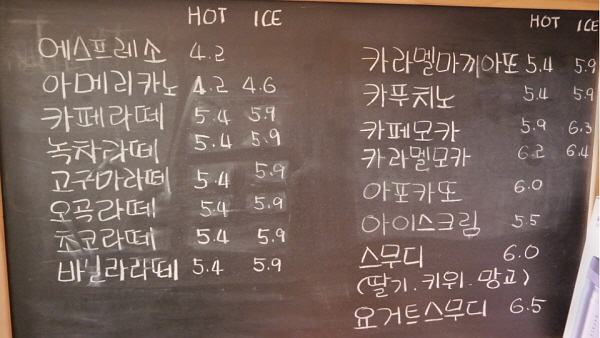 HOT ICE
에스프레소 4.2
아메리카노 4.2 4.6
카페라떼 5.4 5.9
녹차라떼 5.4 5.9
고구마라떼 5.4 5.9
오곡라떼 5.4 5.9
초코라떼 5.4 5.9
바닐라라떼 5.4 5.9
HOT ICE
카라멜마끼아또 5.4 5.9
카푸치노 5.4 5.9
카페모카 5.9 6.3
카라멜모카 6.2 6.4
아포카또 6.0
아이스크림 5.5
스무디 6.0
(딸기.키위.망고)
요거트스무디 6.5